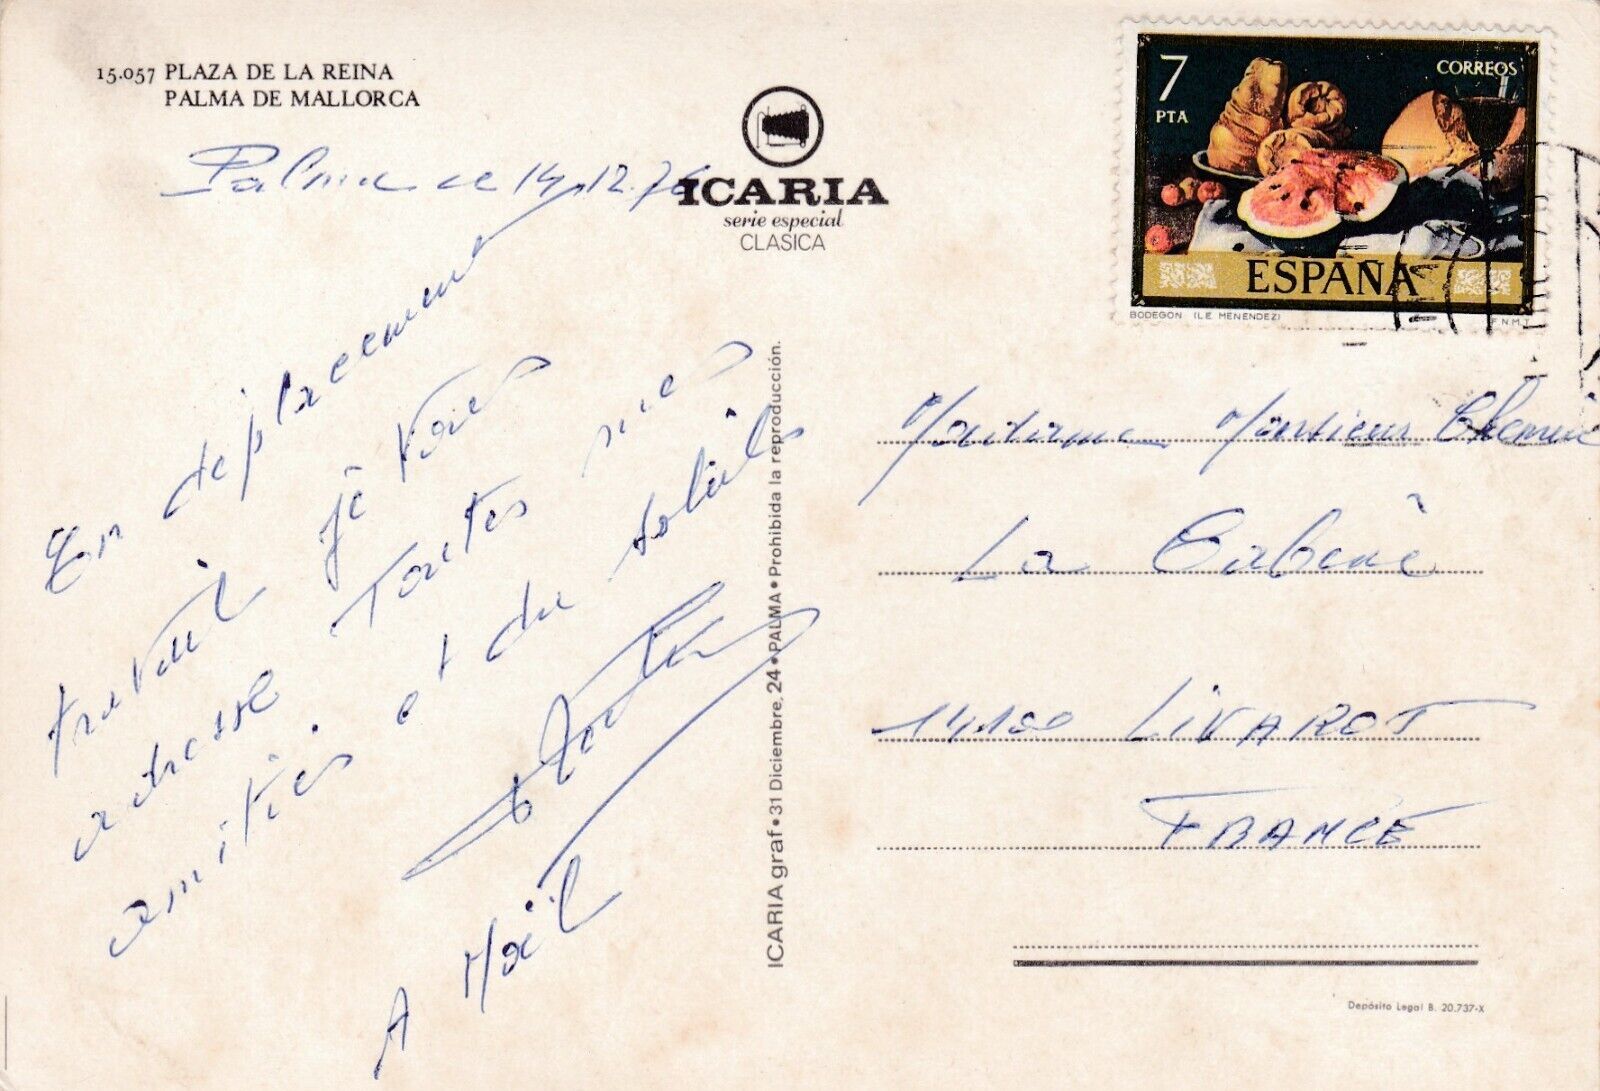 15.057 PLAZA DE LA REINA
PALMA DE MALLORCA
Palma le 14.12.76
ICARIA
serie especial
CLASICA
7
PTA
CORREOS
ESPAÑA
BODEGON (L.E. MENENDEZ)
F.N.M.T.
En déplacement
travail je vous
adresse toutes mes
amitiés et du soleil
A Noël
ICARIA graf • 31 Diciembre, 24 • PALMA • Prohibida la reproducción.
Madame Monsieur
La
14100 LIVAROT
FRANCE
Depósito Legal B. 20.737-X